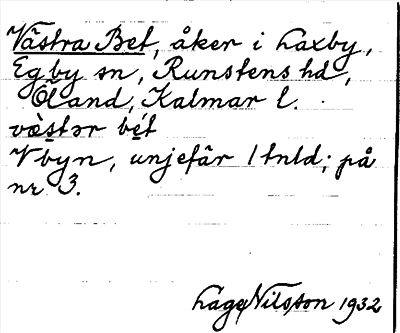 Västra Bet, åker i Laxby,
Egby sn, Runstens hd,
Öland, Kalmar l.
væ̀stər bét
V byn, unjefär 1 tnld; på
nr 3.
Låge Nilsson 1932